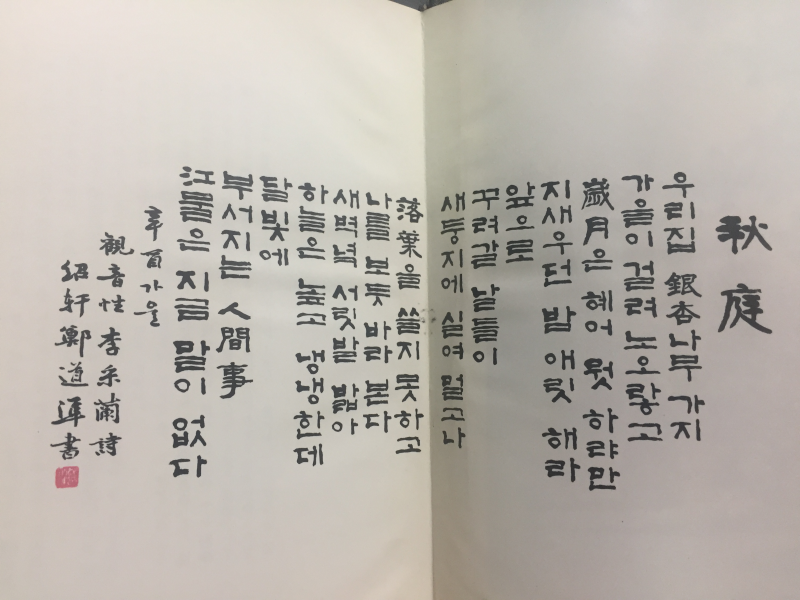 秋庭
우리집 銀杏나무 가지
가을이 걸려 노오랗고
歲月은 혜어 뭣 하랴만
지새우던 밤 애릿 해라
앞으로
꾸려갈 날들이
새둥지에 실여 멀고나
落葉을 쓸지 못하고
나를 보듯 바라 본다
새벽녘 서릿발 밟아
하늘은 높고 냉냉한데
달빛에
부서지는 人間事
江물은 지금 말이 없다
辛酉가을
観音性 李采蘭 詩
紹軒 鄭道準 書